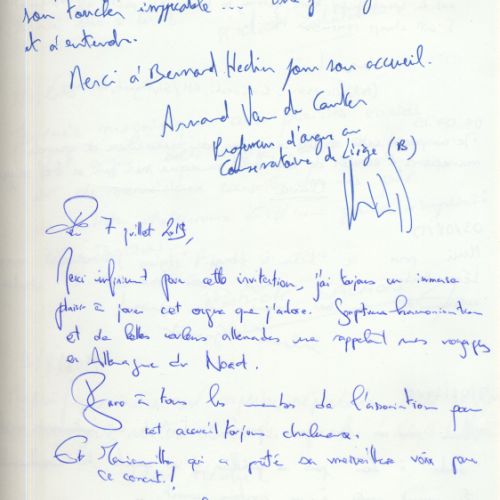 son toucher impeccable...
et à entendre.
Merci à Bernard Hedin pour son accueil.
Armand Van de
Professeur d'orgue au
Conservatoire de Liège (B)
Le 7 juillet 2013,
Merci infiniment pour cette invitation, j'ai toujours un immense
plaisir à jouer cet orgue que j'adore. harmonisation
et de belles couleurs allemandes me rappelant mes voyages
en Allemagne du Nord.
Bravo à tous les membres de l'association pour
cet accueil toujours chaleureux.
Et qui a prêté sa merveilleuse voix pour
ce concert!